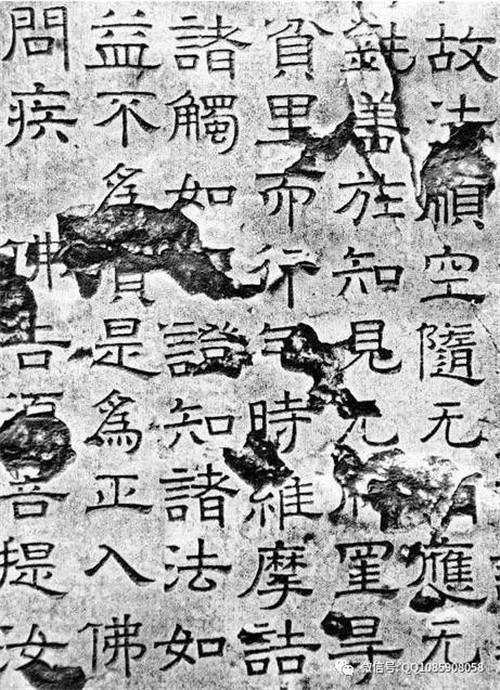 故法順空隨无應无
鈍善於知見无罣㝵
貧里而行乞時維摩詰
諸觸如證知諸法如
益不爲是爲正入佛
問疾 佛告須菩提汝
微信号: QQ1085908058